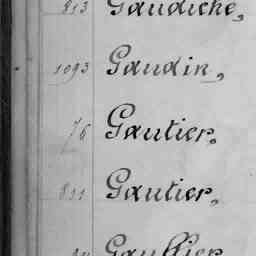 813 Gaudiche,
1093 Gaudin,
76 Gautier,
811 Gautier,
Gaullier